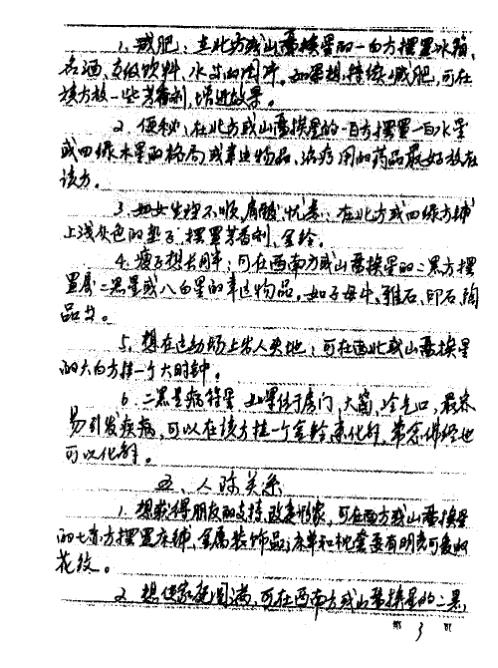 1. 减肥：在北方或山管换星的一白方摆置冰箱、
名酒、高级饮料、水等的图片。如果想持续减肥，可在
该方放一些芳香剂，增进效果。
2. 便秘：在北方或山管换星的一白方摆置一白水星
或四绿木星的格局或幸运物品、治疗用的药品最好放在
该方。
3. 妇女生理不顺，肩酸、忧虑：在北方或四绿方铺
上浅灰色的垫子，摆置芳香剂、金铃。
4. 瘦子想长胖：可在西南方或山管换星的二黑方摆
置属二黑星或八白星的幸运物品。如子母牛、雅石、印石、陶
品等。
5. 想在运动场上出人头地：可在西北或山管换星
的六白方挂一个大时钟。
6. 二黑是病符星，如果位于房门、大窗、冷气口，最容
易引发疾病，可以在该方挂一个金铃来化解，常念佛经也
可以化解。
五、人际关系
1. 想获得朋友的支持，改变形象，可在西方或山管换星
的七赤方摆置床铺、金属装饰品；床单和枕套要有明亮可爱的
花纹。
2. 想使家庭圆满，可在西南方或山管换星的二黑，
第 3 页